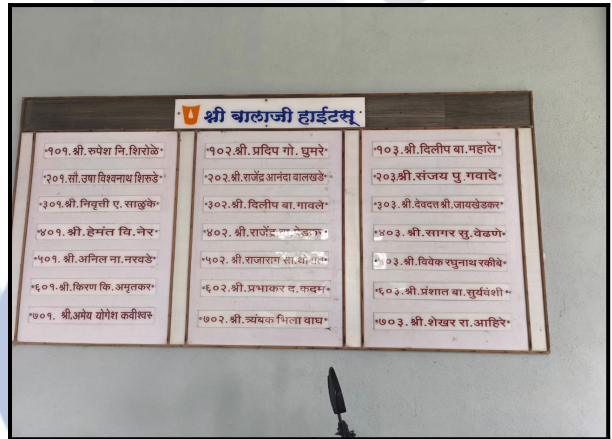 श्री बालाजी हाईटस्
१०१.श्री.रुपेश नि.शिरोळे
२०१.सौ.उषा विश्वनाथ शिरुडे
३०१.श्री.निवृत्ती ए. साळुके
४०१.श्री.हेमंत वि.नेर
५०१.श्री.अनिल ना.नरवडे
६०१.श्री.किरण कि.अमृतकर
७०१. श्री.अमेय योगेश कवीश्वर
१०२.श्री. प्रदिप गो. घुमरे
२०२.श्री.राजेंद्र आनंदा वालखडे
३०२.श्री. दिलीप बा.गावले
४०२. श्री.राजेंद्र
५०२. श्री.राजाराम
६०२. श्री.प्रभाकर द.कदम
७०२. श्री.त्र्यंबक भिला वाघ
१०३.श्री.दिलीप बा.महाले
२०३.श्री.संजय पु.गवादे
३०३. श्री.देवदत्त श्री.जायखेडकर
४०३. श्री.सागर सु.वेढणे
५०३.श्री.विवेक रघुनाथ रकीबे
६०३.श्री.प्रंशात बा.सुर्यवंशी
७०३.श्री.शेखर रा.आहिरे